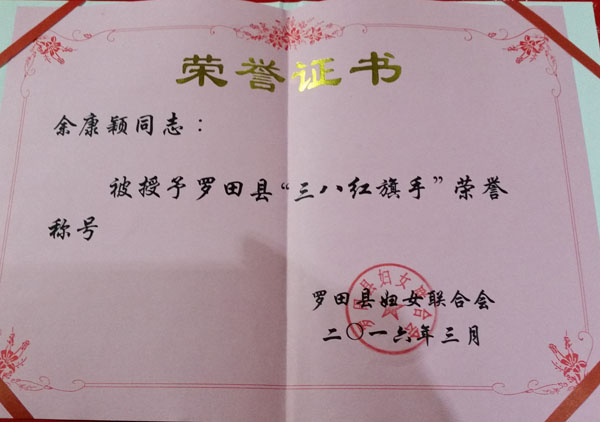 荣誉证书
余康颖同志：
被授予罗田县“三八红旗手”荣誉
称号
罗田县妇女联合会
二〇一六年三月
罗田县妇女联合会